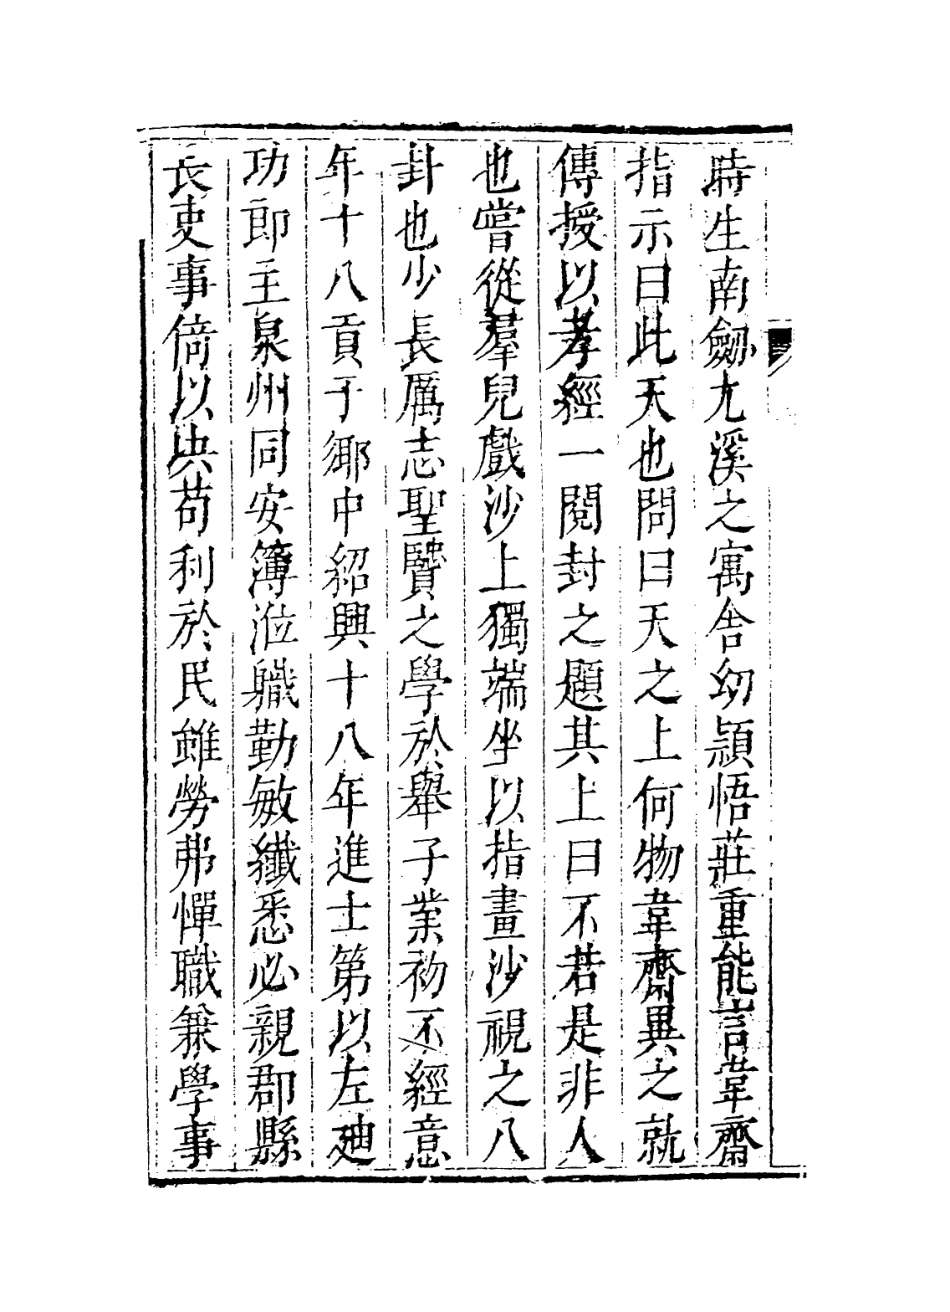 時生南劒尤溪之寓舎幼頴悟莊重能言韋齋
指示曰此天也問曰天之上何物韋齋異之就
傳授以孝經一閱封之題其上曰不若是非人
也嘗從羣兒戲沙上獨端坐以指畫沙視之八
卦也少長厲志聖賢之學於舉子業初不經意
年十八貢于鄉中紹興十八年進士第以左廸
功郎主泉州同安簿涖職勤敏纖悉必親郡縣
長吏事倚以决苟利於民雖勞弗憚職兼學事